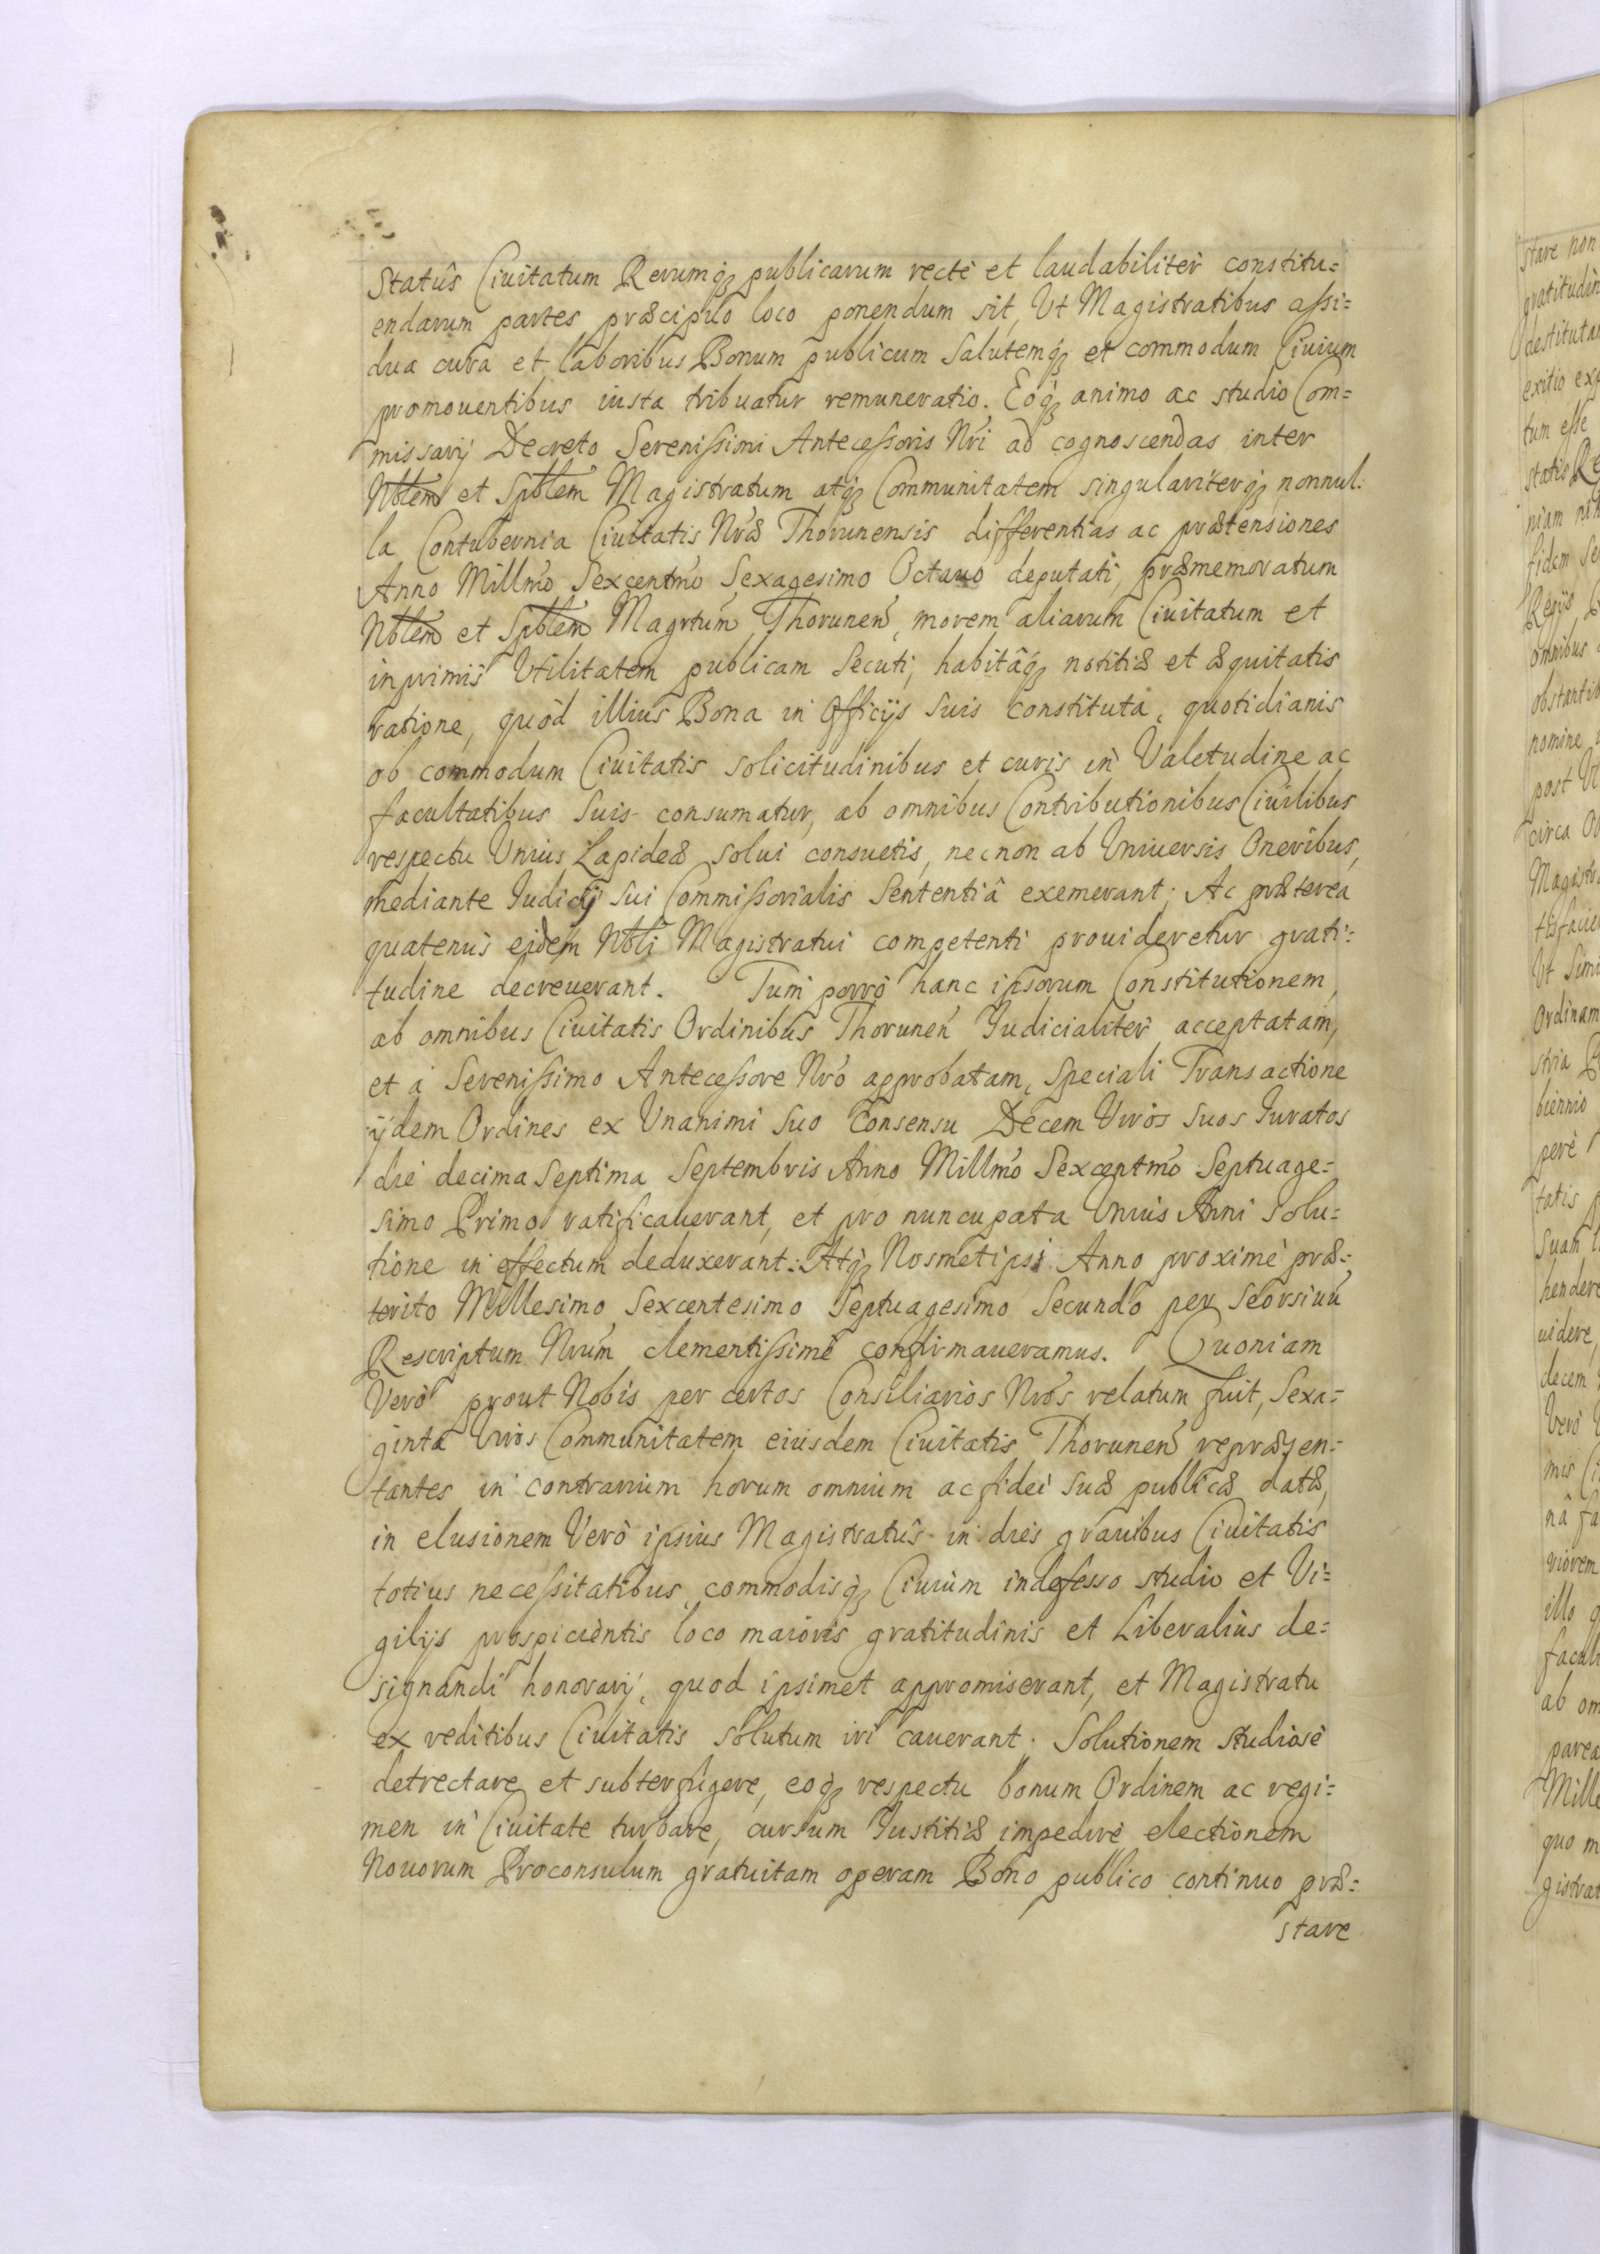 Statûs Ciuitatum Rerumq; publicarum rectè et laudabilitèr constitu=
endarum partes præcipuo loco ponendum sit, Vt Magistratibus assi=
dua cura et laboribus Bonum publicum Salutemq; et commodum Ciuium
promouentibus iusta tribuatur remuneratio. Eoq; animo ac studio Com=
missarij Decreto Serenissimi Antecessoris Nri ad cognoscendas inter
Nblem et Spblem Magistratum atq; Communitatem singularitèrq; nonnul=
la Contubernia Ciuitatis Nræ Thorunensis differentias ac prætensiones
Anno Millmo Sexcentmo Sexagesimo Octauo deputati, præmemoratum
Nblem et Spblem Magrtum Thorunen, morem aliarum Ciuitatum et
inprimis Vtilitatem publicam Secuti, habitâq; notitiæ et æquitatis
ratione, quòd illius Bona in Officijs Suis constituta, quotidianis
ob commodum Ciuitatis solicitudinibus et curis in Valetudine ac
facultatibus Suis consumatur, ab omnibus Contributionibus Ciuilibus
respectu Vnius Lapideæ solui consuetis, necnon ab Vniuersis Oneribus,
mediante Iudicij sui Commissorialis Sententiâ exemerant; Ac præterea
quatenus eidem Nbli Magistratui competenti prouideretur grati=
tudine decreuerant. Tum porrò hanc ipsorum Constitutionem,
ab omnibus Ciuitatis Ordinibus Thorunen Iudicialitèr acceptatam,
et à Serenissimo Antecessore Nro approbatam, Speciali Transactione
ijdem Ordines ex Vnanimi Suo Consensu Decem Viros Suos Iuratos
die decima Septima Septembris Anno Millmo Sexcentmo Septuage=
simo Primo ratificauerant, et pro nuncupata Vnius Anni Solu=
tione in effectum deduxerant: Atq; Nosmetipsi Anno proximè præ=
terito Millesimo Sexcentesimo Septuagesimo Secundo per Seorsiuū
Rescriptum Nrum clementissimè confirmaueramus. Quoniam
Verò prout Nobis per certos Consiliarios Nros relatum fuit, Sexa=
ginta Viros Communitatem eiusdem Ciuitatis Thorunen repræsen=
tantes in contrarium horum omnium ac fidei Suæ publicæ datæ,
in elusionem Verò ipsius Magistratûs in dies grauibus Ciuitatis
totius necessitatibus, commodisq; Ciuium indefesso studio et Vi=
gilijs prospicientis loco maioris gratitudinis et Liberalius de=
signandi honorarij, quod ipsimet appromiserant, et Magistratu
ex reditibus Ciuitatis Solutum iri cauerant. Solutionem studiosè
detrectare et subterfugere, eoq; respectu bonum Ordinem ac regi=
men in Ciuitate turbare, cursum Iustitiæ impedire electionem
Nouorum Proconsulum gratuitam operam Bono publico continuo præ=
stare